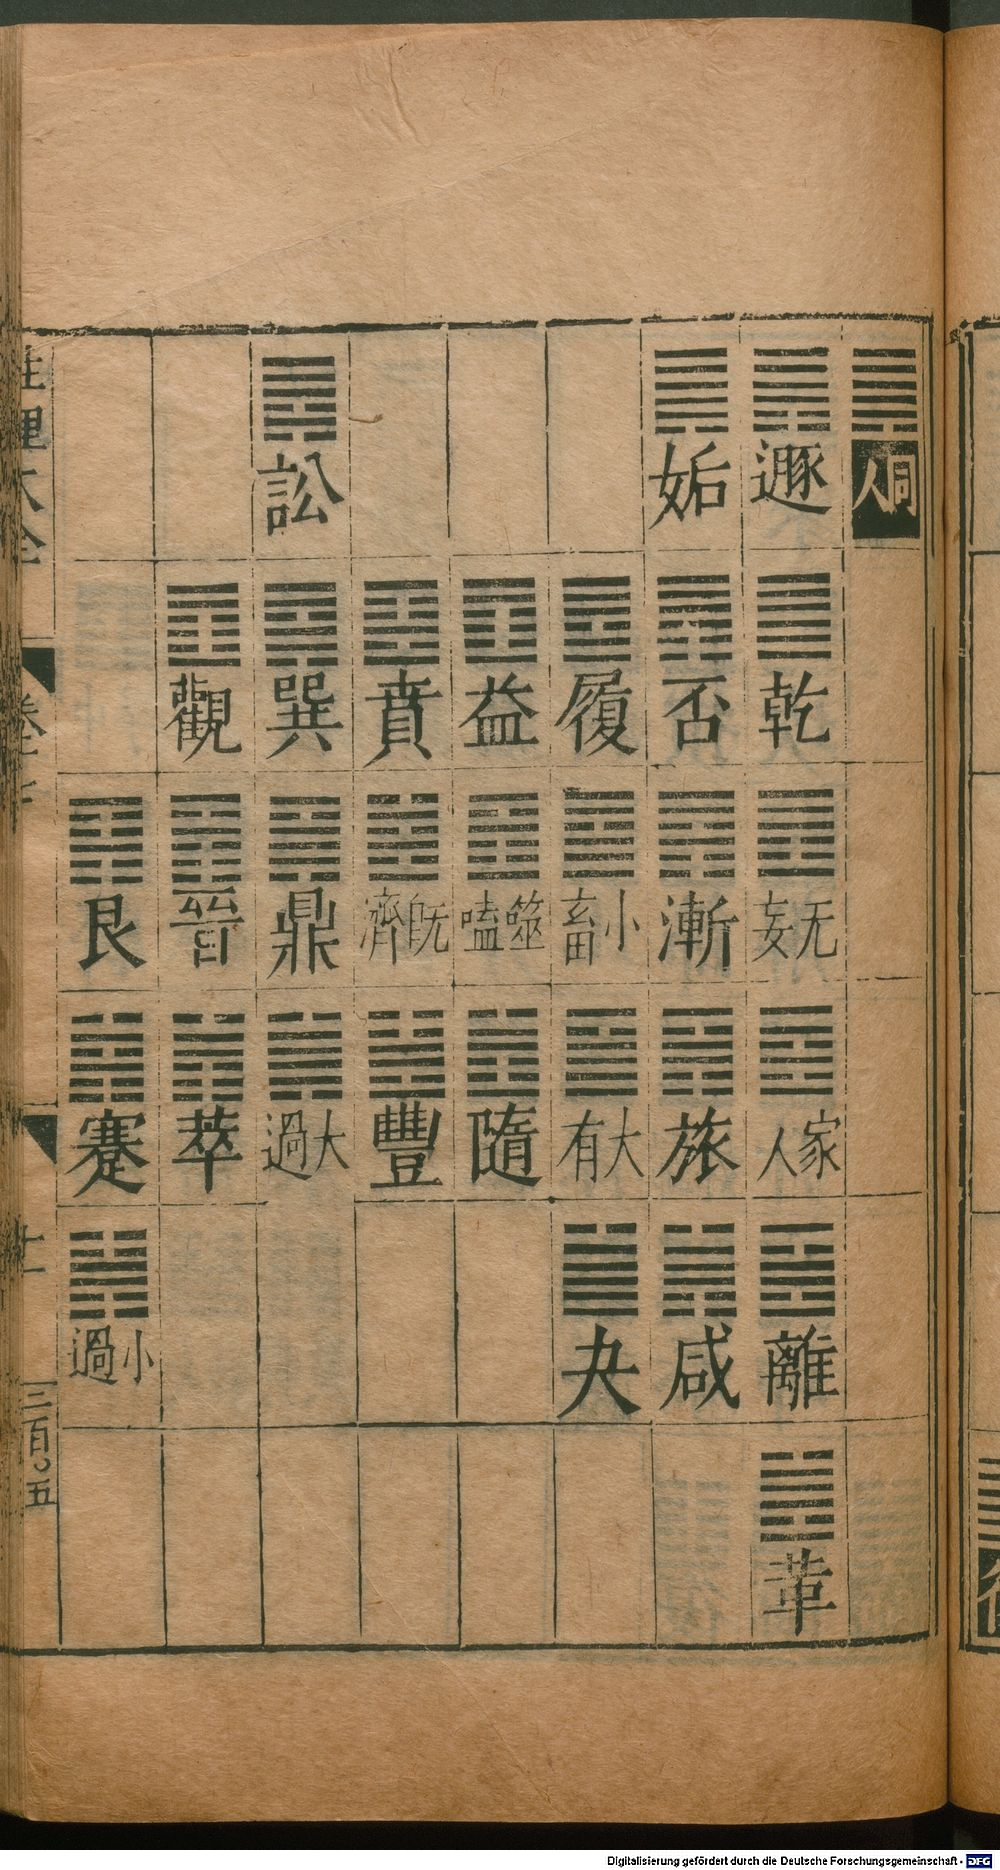 同人
遯
乾
无妄
家人
離
革
姤
否
漸
旅
咸
履
小畜
大有
夬
益
噬嗑
隨
賁
既濟
豐
訟
巽
鼎
大過
觀
晉
萃
艮
蹇
小過
性理大全
卷
十一
三百〇五
Digitalisierung gefördert durch die Deutsche Forschungsgemeinschaft - DFG